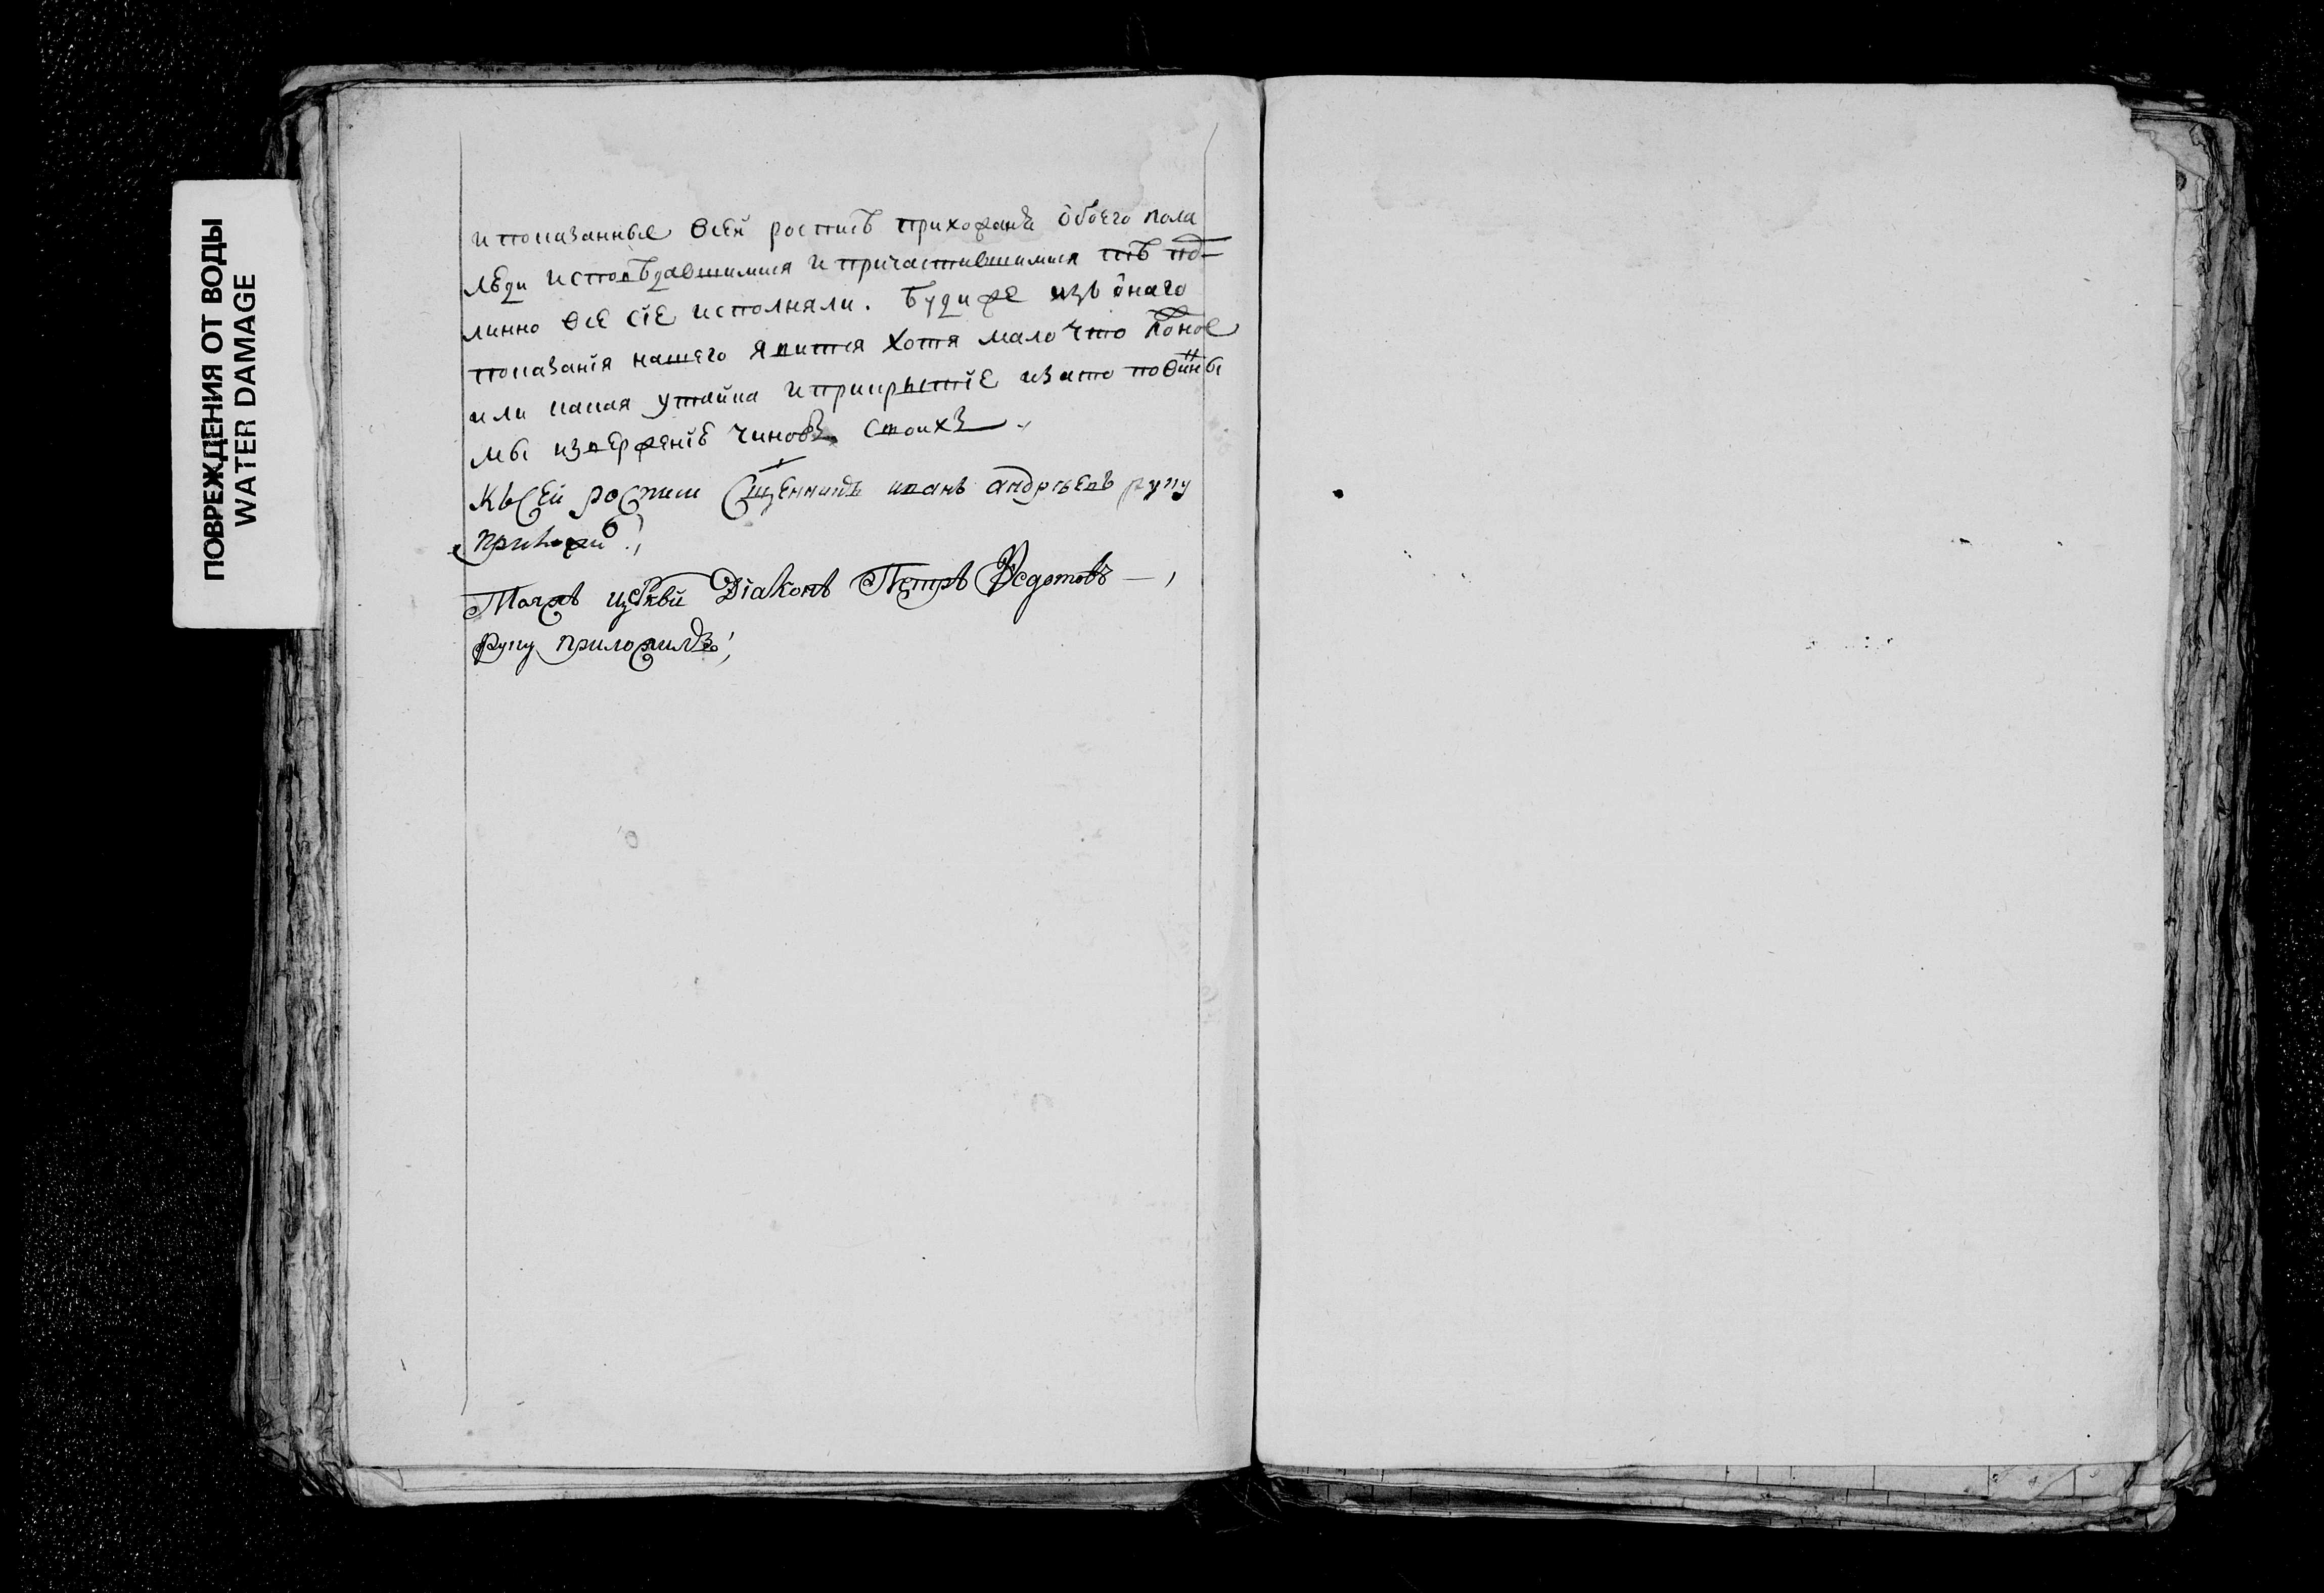 ПОВРЕЖДЕНИЯ ОТ ВОДЫ
WATER DAMAGE
и показанные всей росписѣ прихожанѣ обоего пола
люди исповѣдавшимися и причастившимися под
линно все сіе исполняли. Буди же изъ онаго
показанія нашего явится хотя мало что
или какая утайка и прикрытіе и за то повинны
мы изверженіе чиновъ своихъ
Къ сей росписи Сщенникъ иванъ андрѣевъ руку
приложи
Тояжъ цркви Діаконъ Петръ Федотовъ
Руку приложилъ